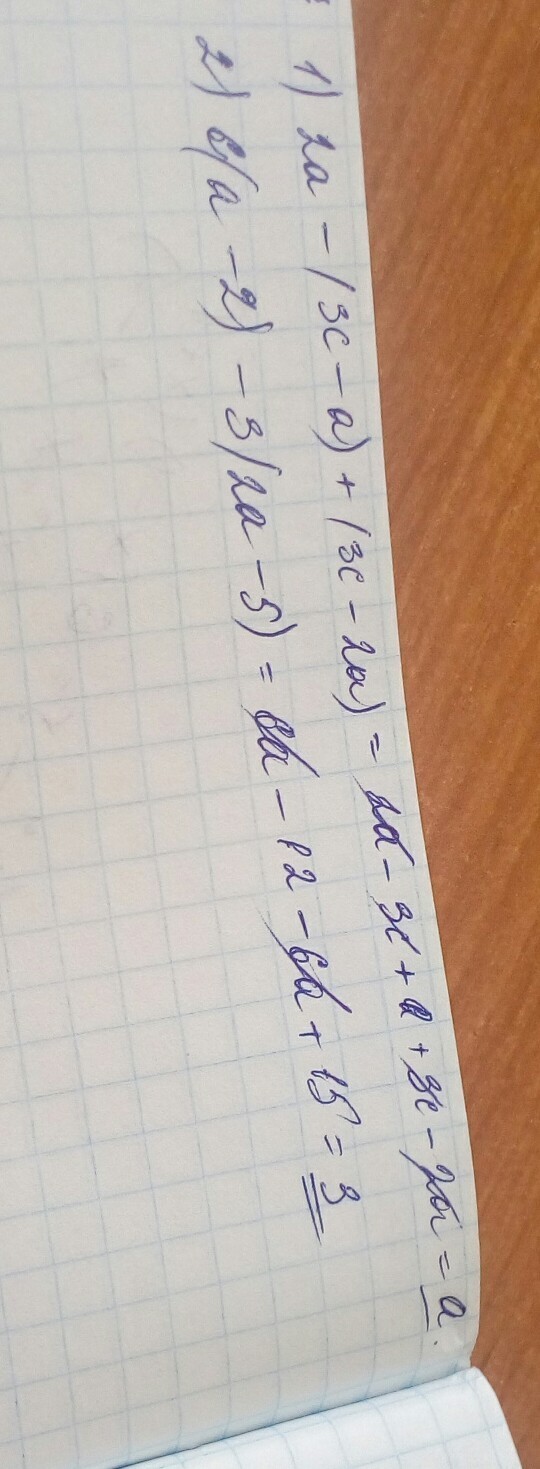 1) 2a - (3c - a) + (3c - 2a) = 2a - 3c + a + 3c - 2a = a.
2) 6(a - 2) - 3(2a - 5) = 6a - 12 - 6a + 15 = 3